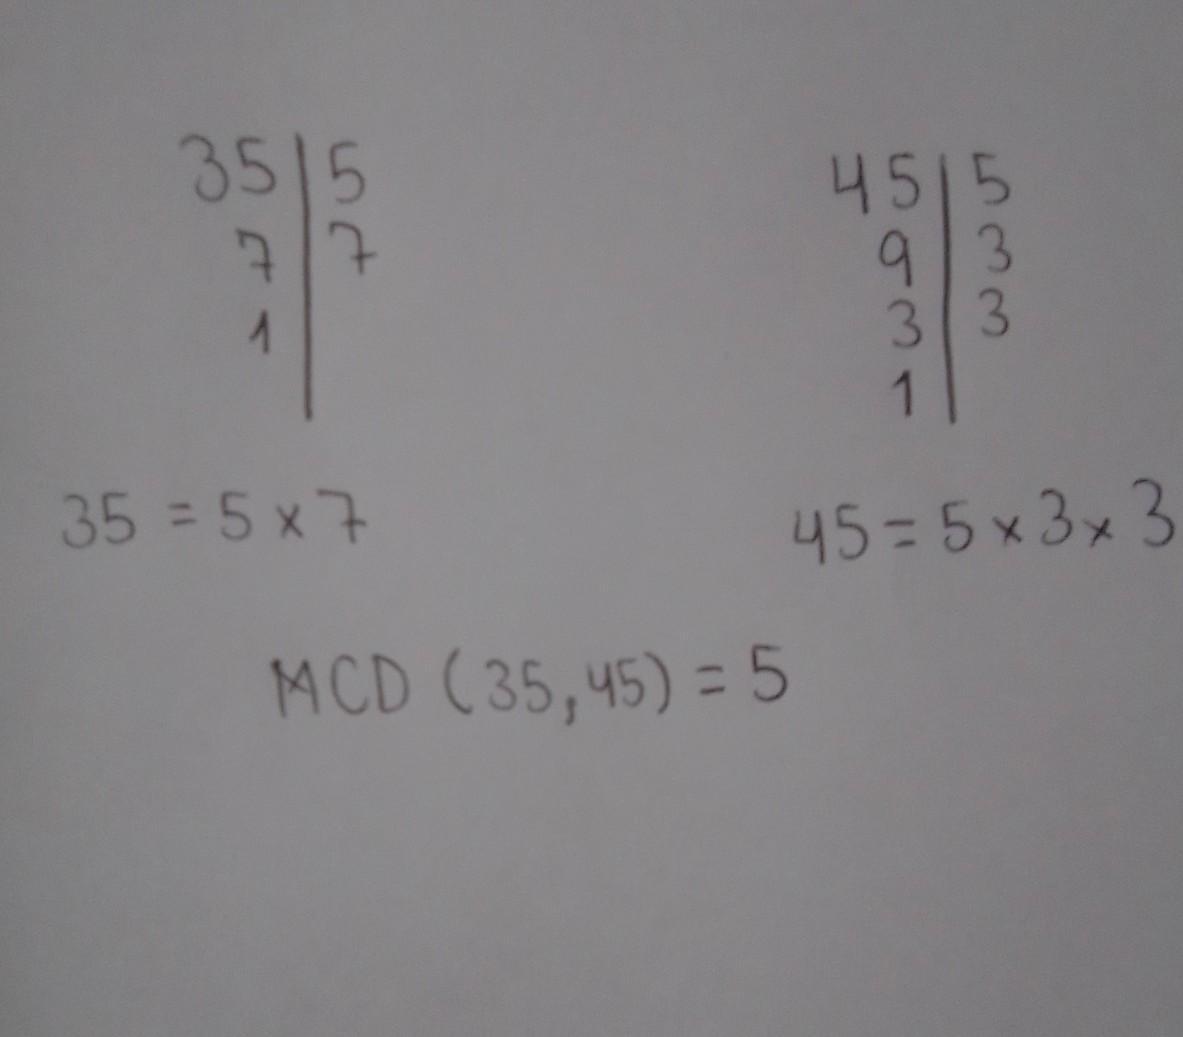 35 | 5
7 | 7
1 |
45 | 5
9 | 3
3 | 3
1 |
35 = 5 x 7
45 = 5 x 3 x 3
MCD (35,45) = 5